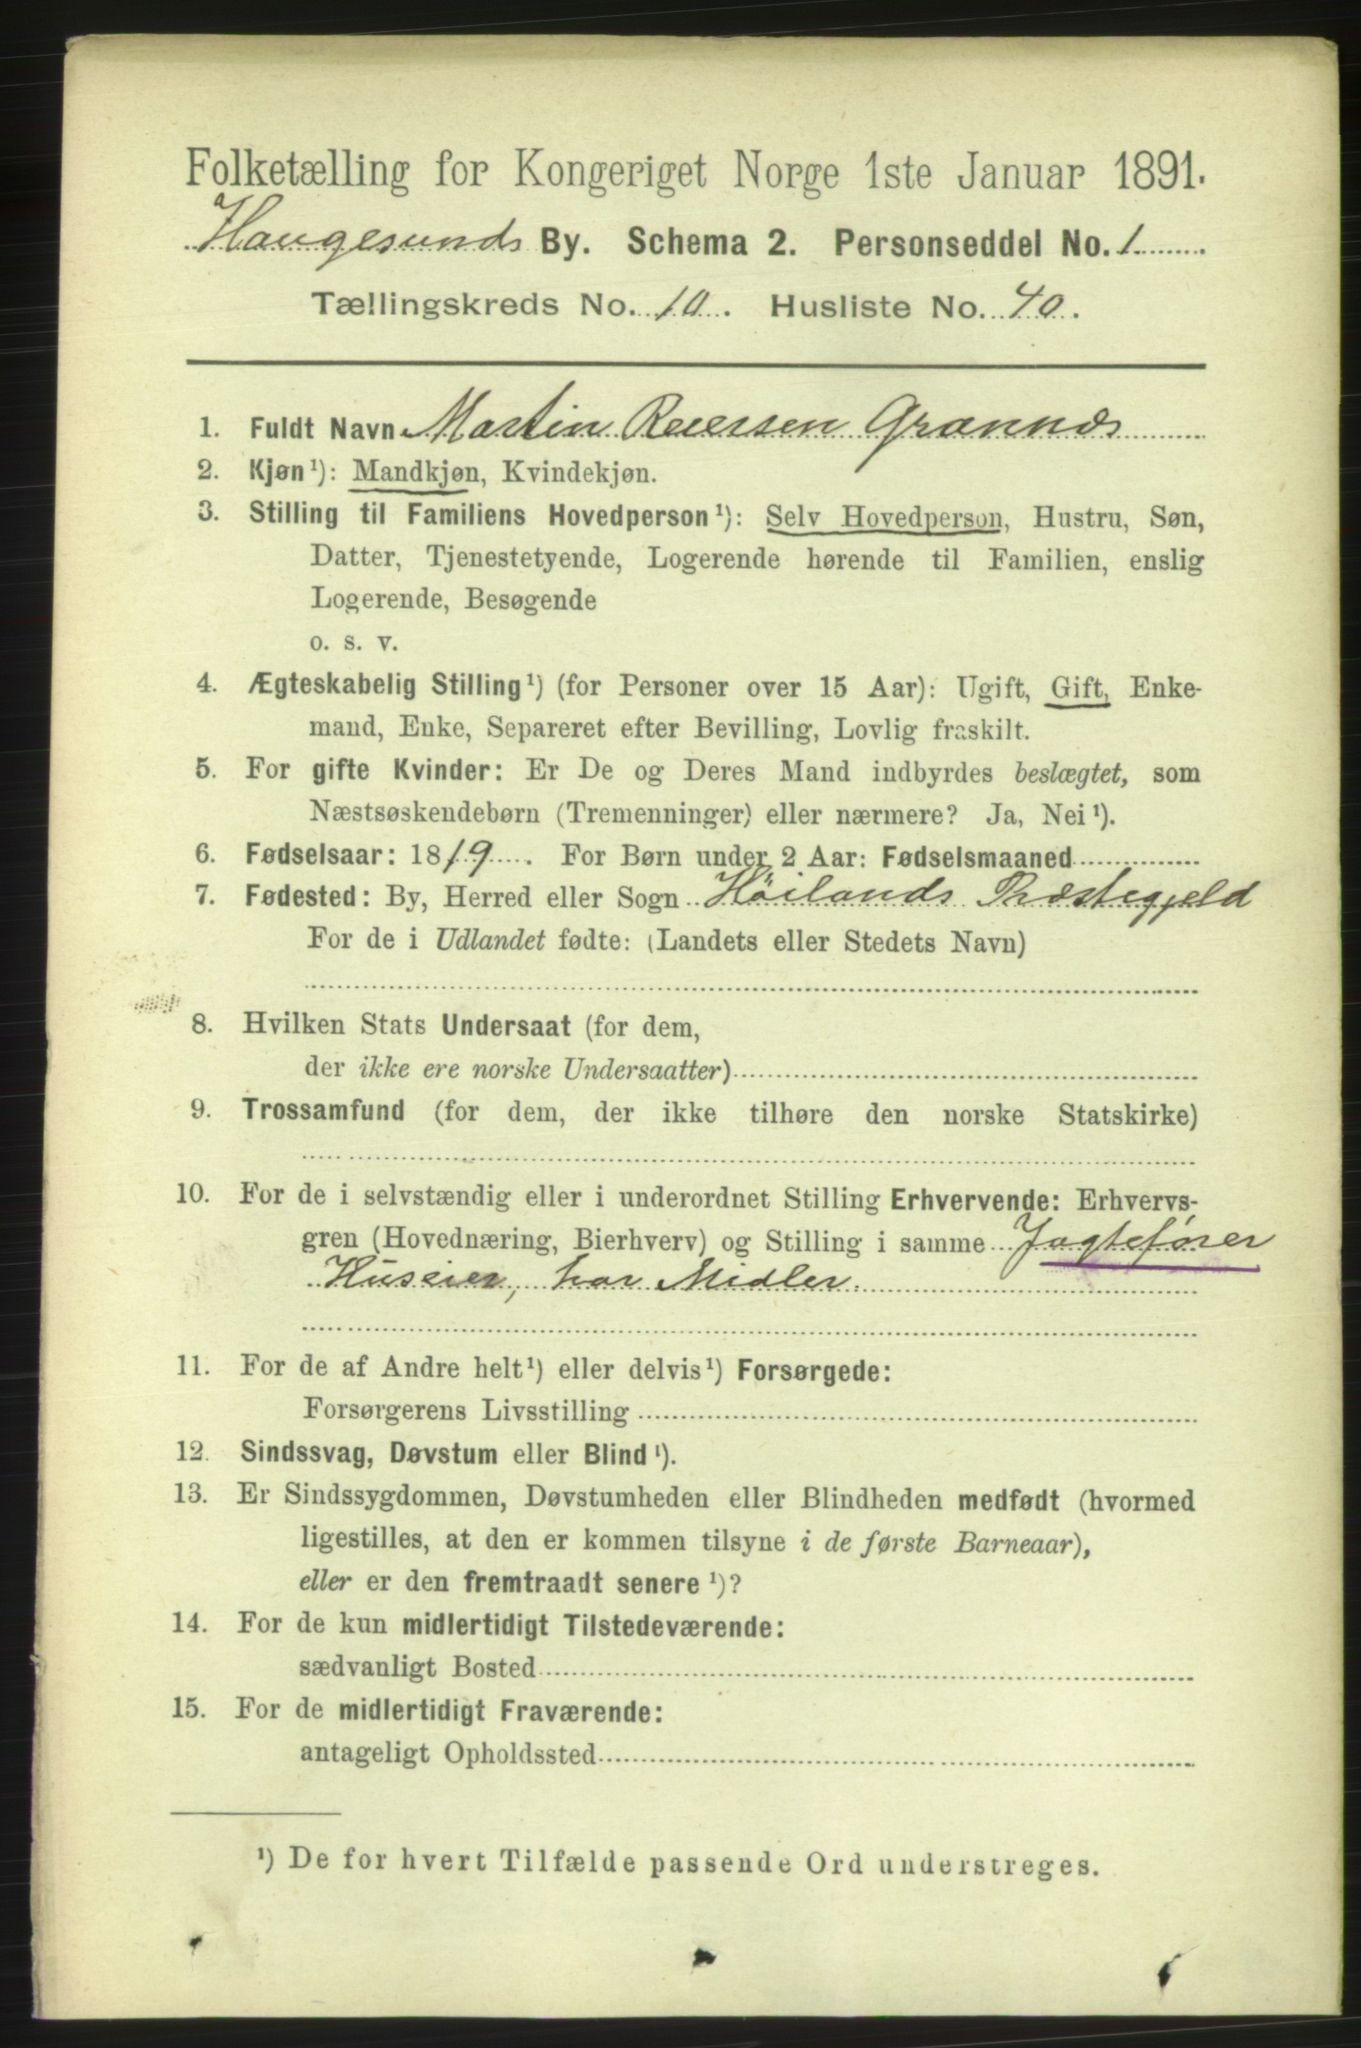 Folketælling for Kongeriget Norge 1ste Januar 1891.
Haugesunds By. Schema 2. Personseddel No. 1
Tællingskreds No. 10. Husliste No. 40.
1. Fuldt Navn Martin Reiersen Grannæs
2. Kjøn¹): Mandkjøn, Kvindekjøn.
3. Stilling til Familiens Hovedperson¹): Selv Hovedperson, Hustru, Søn,
Datter, Tjenestetyende, Logerende hørende til Familien, enslig
Logerende, Besøgende
o. s. v.
4. Ægteskabelig Stilling¹) (for Personer over 15 Aar): Ugift, Gift, Enke-
mand, Enke, Separeret efter Bevilling, Lovlig fraskilt.
5. For gifte Kvinder: Er De og Deres Mand indbyrdes beslægtet, som
Næstsøskendebørn (Tremenninger) eller nærmere? Ja, Nei¹).
6. Fødselsaar: 1819. For Børn under 2 Aar: Fødselsmaaned
7. Fødested: By, Herred eller Sogn Höilands Præstegjeld
For de i Udlandet fødte: (Landets eller Stedets Navn)
8. Hvilken Stats Undersaat (for dem,
der ikke ere norske Undersaatter)
9. Trossamfund (for dem, der ikke tilhøre den norske Statskirke)
10. For de i selvstændig eller i underordnet Stilling Erhvervende: Erhvervs-
gren (Hovednæring, Bierhverv) og Stilling i samme Jagtefører
Huseier, har Midler.
11. For de af Andre helt¹) eller delvis¹) Forsørgede:
Forsørgerens Livsstilling
12. Sindssvag, Døvstum eller Blind¹).
13. Er Sindssygdommen, Døvstumheden eller Blindheden medfødt (hvormed
ligestilles, at den er kommen tilsyne i de første Barneaar),
eller er den fremtraadt senere¹)?
14. For de kun midlertidigt Tilstedeværende:
sædvanligt Bosted
15. For de midlertidigt Fraværende:
antageligt Opholdssted
¹) De for hvert Tilfælde passende Ord understreges.